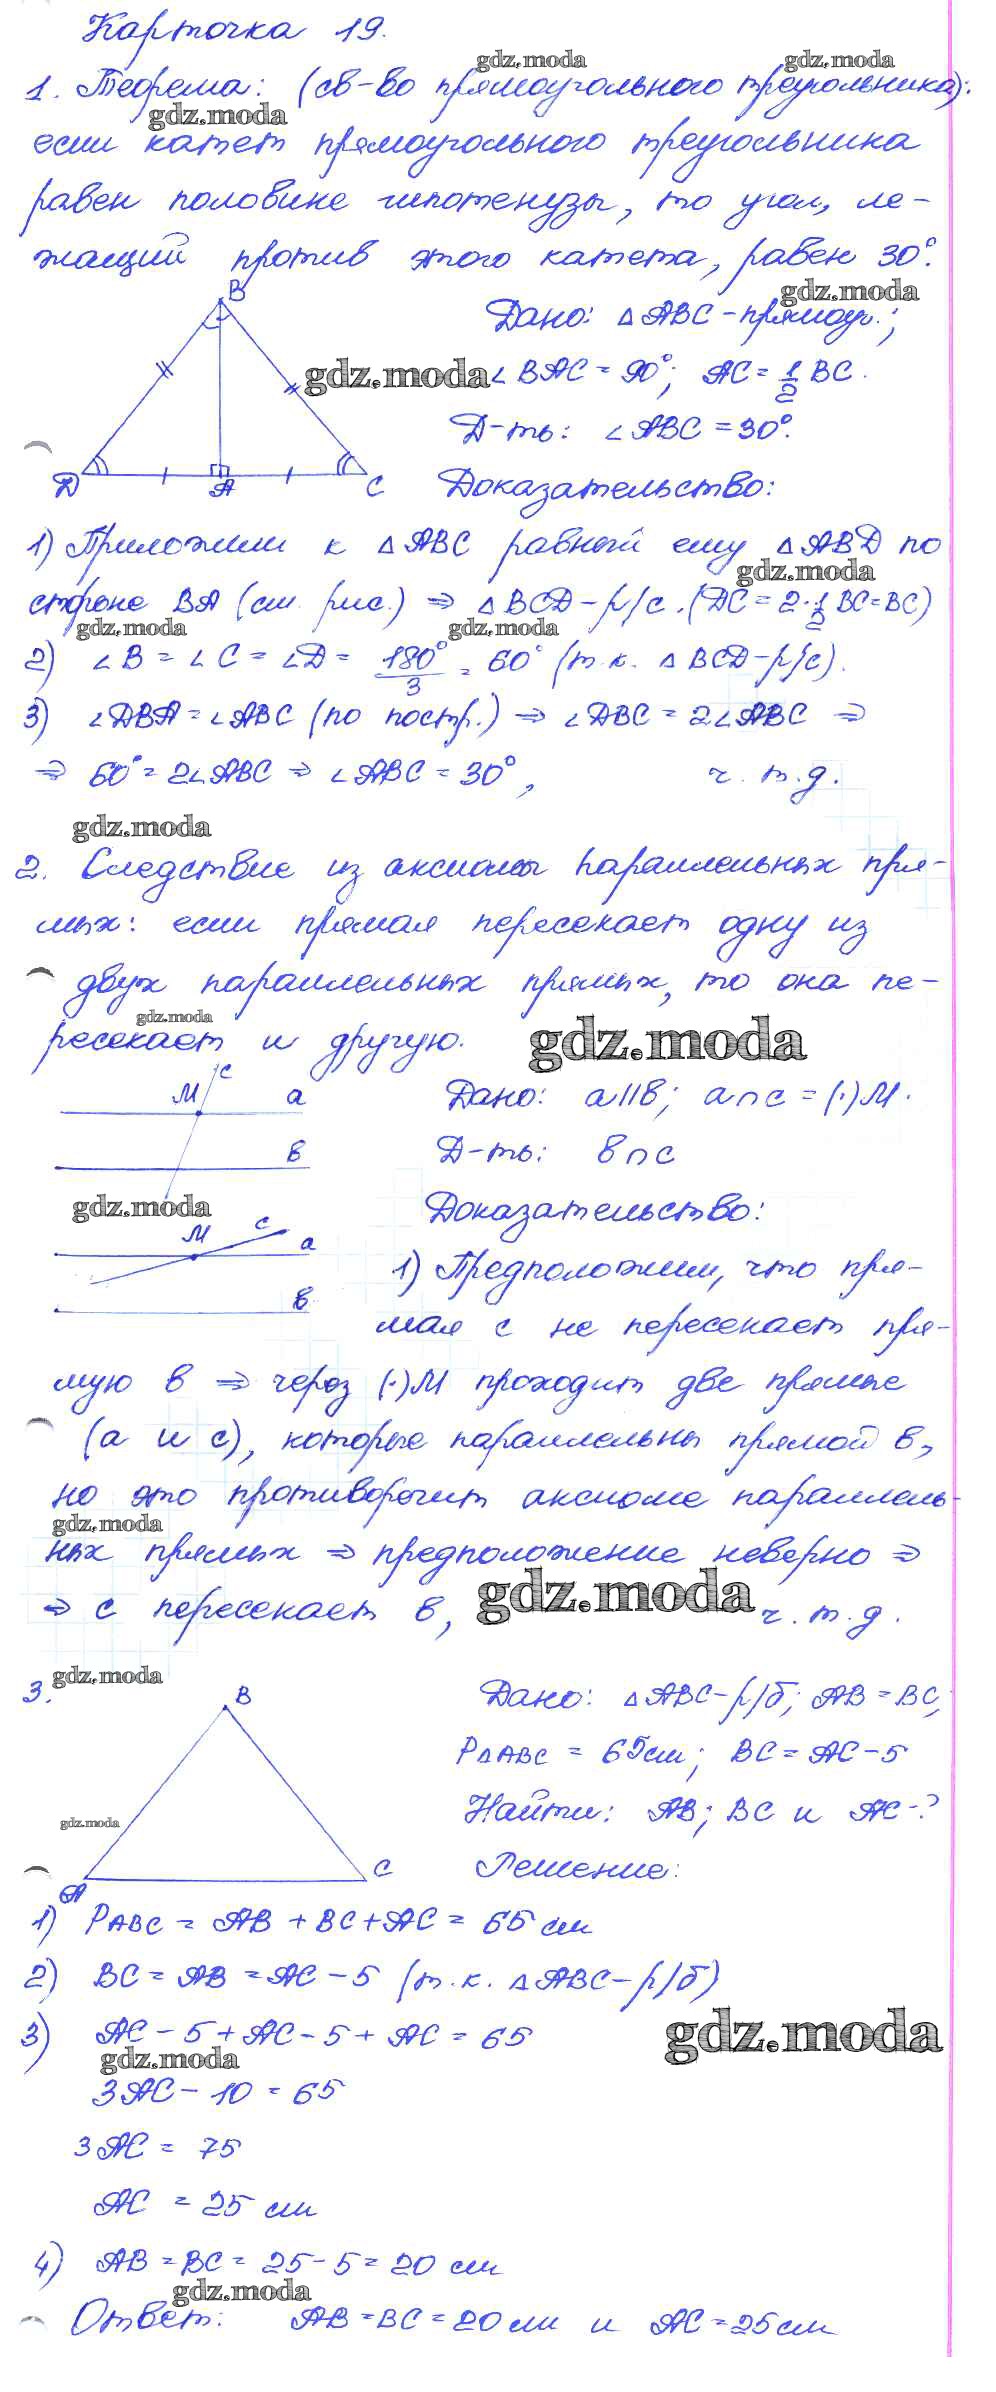 Карточка 19.
gdz.moda gdz.moda
1. Теорема: (св-во прямоугольного треугольника):
gdz.moda
если катет прямоугольного треугольника
равен половине гипотенузы, то угол, ле-
жащий против этого катета, равен 30°.
B
gdz.moda
Дано: △ABC-прямоуг.;
gdz.moda
∠BAC = 90°; AC = 1/2 BC.
Д-ть: ∠ABC = 30°.
D A C
Доказательство:
1) Приложим к △ABC равный ему △ABD по
gdz.moda
стороне BA (см. рис.) ⇒ △BCD-р/с. (DC = 2·1/2 BC = BC)
gdz.moda gdz.moda
2) ∠B = ∠C = ∠D = 180°/3 = 60° (т.к. △BCD-р/с).
3) ∠DBA = ∠ABC (по постр.) ⇒ ∠DBC = 2∠ABC ⇒
⇒ 60° = 2∠ABC ⇒ ∠ABC = 30°, ч.т.д.
gdz.moda
2. Следствие из аксиомы параллельных пря-
мых: если прямая пересекает одну из
двух параллельных прямых, то она пе-
gdz.moda
ресекает и другую.
gdz.moda
c
M a
b
Дано: a||b; a∩c = (·)M.
Д-ть: b∩c
gdz.moda
Доказательство:
M c a
b
1) Предположим, что пря-
мая c не пересекает пря-
мую b ⇒ через (·)M проходит две прямые
(a и c), которые параллельны прямой b,
но это противоречит аксиоме параллель-
gdz.moda
ных прямых ⇒ предположение неверно ⇒
gdz.moda
⇒ c пересекает b, ч.т.д.
gdz.moda
3.
B
Дано: △ABC-р/б; AB = BC;
P△ABC = 65см; BC = AC-5
gdz.moda
Найти: AB; BC и AC-?
A C
Решение:
1) PABC = AB + BC + AC = 65 см
2) BC = AB = AC - 5 (т.к. △ABC-р/б)
3) AC - 5 + AC - 5 + AC = 65
gdz.moda
gdz.moda
3AC - 10 = 65
3AC = 75
AC = 25 см
4) AB = BC = 25 - 5 = 20 см
gdz.moda
Ответ: AB = BC = 20см и AC = 25см